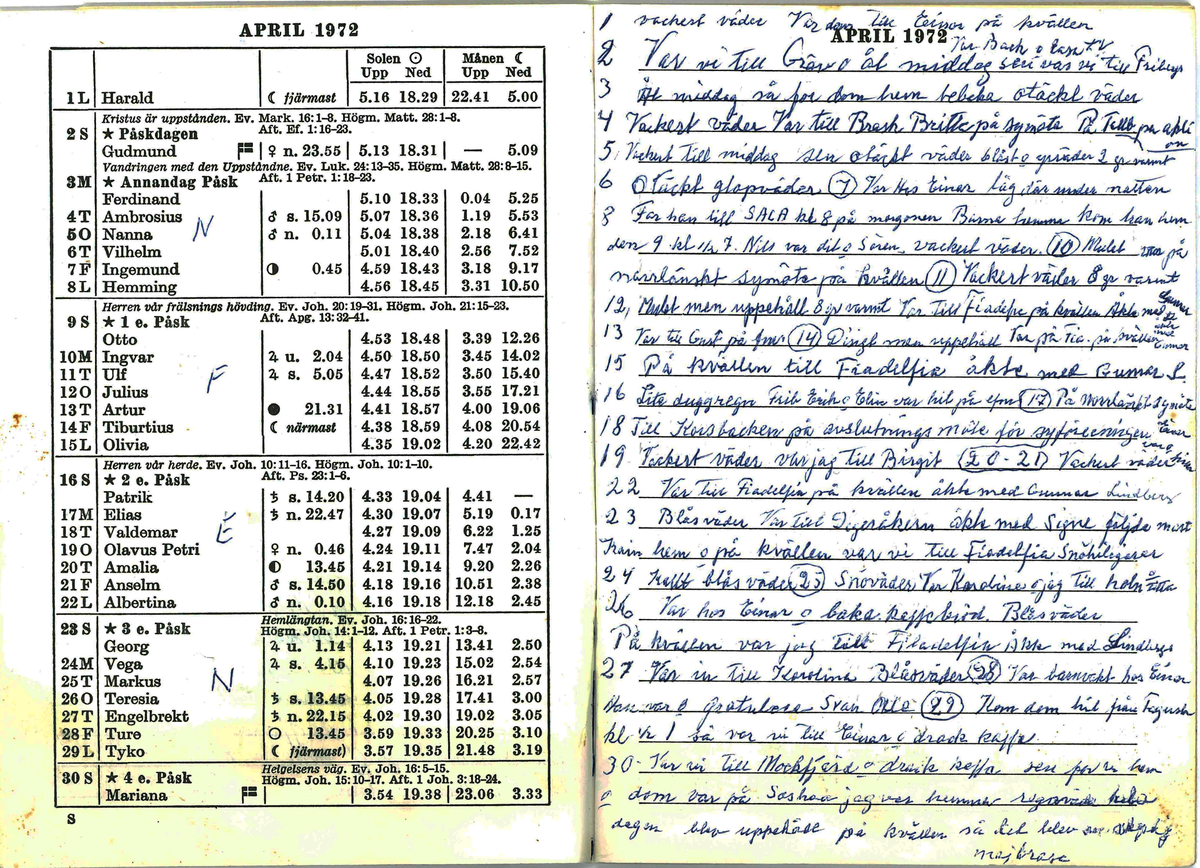 APRIL 1972
Solen ☉ Månen ☾
Upp Ned Upp Ned
1 L Harald ☾ fjärmast 5.16 18.29 22.41 5.00
Kristus är uppstånden. Ev. Mark. 16:1-8. Högm. Matt. 28:1-8.
2 S ★ Påskdagen Aft. Ef. 1:16-23.
Gudmund ♀ n. 23.55 5.13 18.31 — 5.09
Vandringen med den Uppståndne. Ev. Luk. 24:13-35. Högm. Matt. 28:8-15.
3M ★ Annandag Påsk Aft. 1 Petr. 1:18-23.
Ferdinand 5.10 18.33 0.04 5.25
4 T Ambrosius ♂ s. 15.09 5.07 18.36 1.19 5.53
5 O Nanna N ♂ n. 0.11 5.04 18.38 2.18 6.41
6 T Vilhelm 5.01 18.40 2.56 7.52
7 F Ingemund ◑ 0.45 4.59 18.43 3.18 9.17
8 L Hemming 4.56 18.45 3.31 10.50
Herren vår frälsnings hövding. Ev. Joh. 20:19-31. Högm. Joh. 21:15-23.
9 S ★ 1 e. Påsk Aft. Apg. 13:32-41.
Otto 4.53 18.48 3.39 12.26
10M Ingvar ♃ u. 2.04 4.50 18.50 3.45 14.02
11 T Ulf F ♃ s. 5.05 4.47 18.52 3.50 15.40
12 O Julius 4.44 18.55 3.55 17.21
13 T Artur ● 21.31 4.41 18.57 4.00 19.06
14 F Tiburtius ☾ närmast 4.38 18.59 4.08 20.54
15 L Olivia 4.35 19.02 4.20 22.42
Herren vår herde. Ev. Joh. 10:11-16. Högm. Joh. 10:1-10.
16 S ★ 2 e. Påsk Aft. Ps. 23:1-6.
Patrik ♄ s. 14.20 4.33 19.04 4.41 —
17M Elias ♄ n. 22.47 4.30 19.07 5.19 0.17
18 T Valdemar E 4.27 19.09 6.22 1.25
19 O Olavus Petri ♀ n. 0.46 4.24 19.11 7.47 2.04
20 T Amalia ◐ 13.45 4.21 19.14 9.20 2.26
21 F Anselm ♂ s. 14.50 4.18 19.16 10.51 2.38
22 L Albertina ♂ n. 0.10 4.16 19.18 12.18 2.45
Hemlängtan. Ev. Joh. 16:16-22.
23 S ★ 3 e. Påsk Högm. Joh. 14:1-12. Aft. 1 Petr. 1:3-8.
Georg ♃ u. 1.14 4.13 19.21 13.41 2.50
24M Vega ♃ s. 4.15 4.10 19.23 15.02 2.54
25 T Markus N 4.07 19.26 16.21 2.57
26 O Teresia ♄ s. 13.45 4.05 19.28 17.41 3.00
27 T Engelbrekt ♄ n. 22.15 4.02 19.30 19.02 3.05
28 F Ture ○ 13.45 3.59 19.33 20.25 3.10
29 L Tyko ☾ fjärmast) 3.57 19.35 21.48 3.19
Helgelsens väg. Ev. Joh. 16:5-15.
30 S ★ 4 e. Påsk Högm. Joh. 15:10-17. Aft. 1 Joh. 3:18-24.
Mariana 3.54 19.38 23.06 3.33
8
1 vackert väder Var dom till Einar på kvällen
APRIL 1972
2 Var vi till Gävo åt middag sen var vi till Fribergs
3 åt middag så for dom hem otäckt väder
4 Vackert väder Var till Brash Britta på symöte
5, Vackert till middag sen otäckt väder blåst o 2 gr varmt
6 Otäckt glopväder (7) Var Hos Einar låg där under natten
8 Far han till SALA kl 8 på morgonen hemma kom han hem
den 9 kl 1/2 7. Nils var dit o Sören. vackert väder (10) Mulet på
norrländskt symöte på kvällen (11) Vackert väder 8 gr varmt
12, Mulet men uppehåll 8 gr varmt Var till Fiadelfia på kvällen Åkte med
13 Var till Gust på (14) men uppehåll på kvällen
15 På kvällen till Fiadelfia åkte med Gunnar L.
16 Lite duggregn Frib Erik o Elin var hit på (17) På Norrländskt symöte
18 Till Korsbacken på avslutnings möte för syföreningen
19 Vackert väder var jag till Birgit (20-21) Vackert väder
22 Var Till Fiadelfia på kvällen åkte med Gunnar Lindberg
23 Blåsväder Var till Digeråkern åkte med Signe följde mart
hem o på kvällen var vi till Fiadelfia
24 Kallt blåsväder (25) Snöväder Var Karolina o jag till
26 Var hos Einar o baka kaffebröd. Blåsväder
På kvällen var jag till Filadelfia Åkte med Lindbergs
27 Var in till Karolina Blåsväder (28) Var barnvakt hos Einar
Han var o gratulera Svan Otto (29) Kom dom hit från Fagersta
kl 1/2 1 så var vi till Einar o drack kaffe
30. Var vi till Mockfjärd o drack kaffe sen for vi hem
o dom var på jag var hemma hela
dagen blev uppehåll på kvällen så det blev
majbrasa